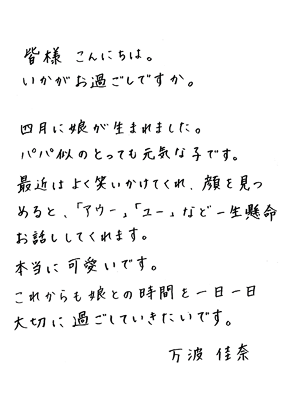 皆様 こんにちは。
いかがお過ごしですか。
四月に娘が生まれました。
パパ似のとっても元気な子です。
最近はよく笑いかけてくれ、顔を見つ
めると、「アウー」「ユー」など一生懸命
お話ししてくれます。
本当に可愛いです。
これからも娘との時間を一日一日
大切に過ごしていきたいです。
万波 佳奈